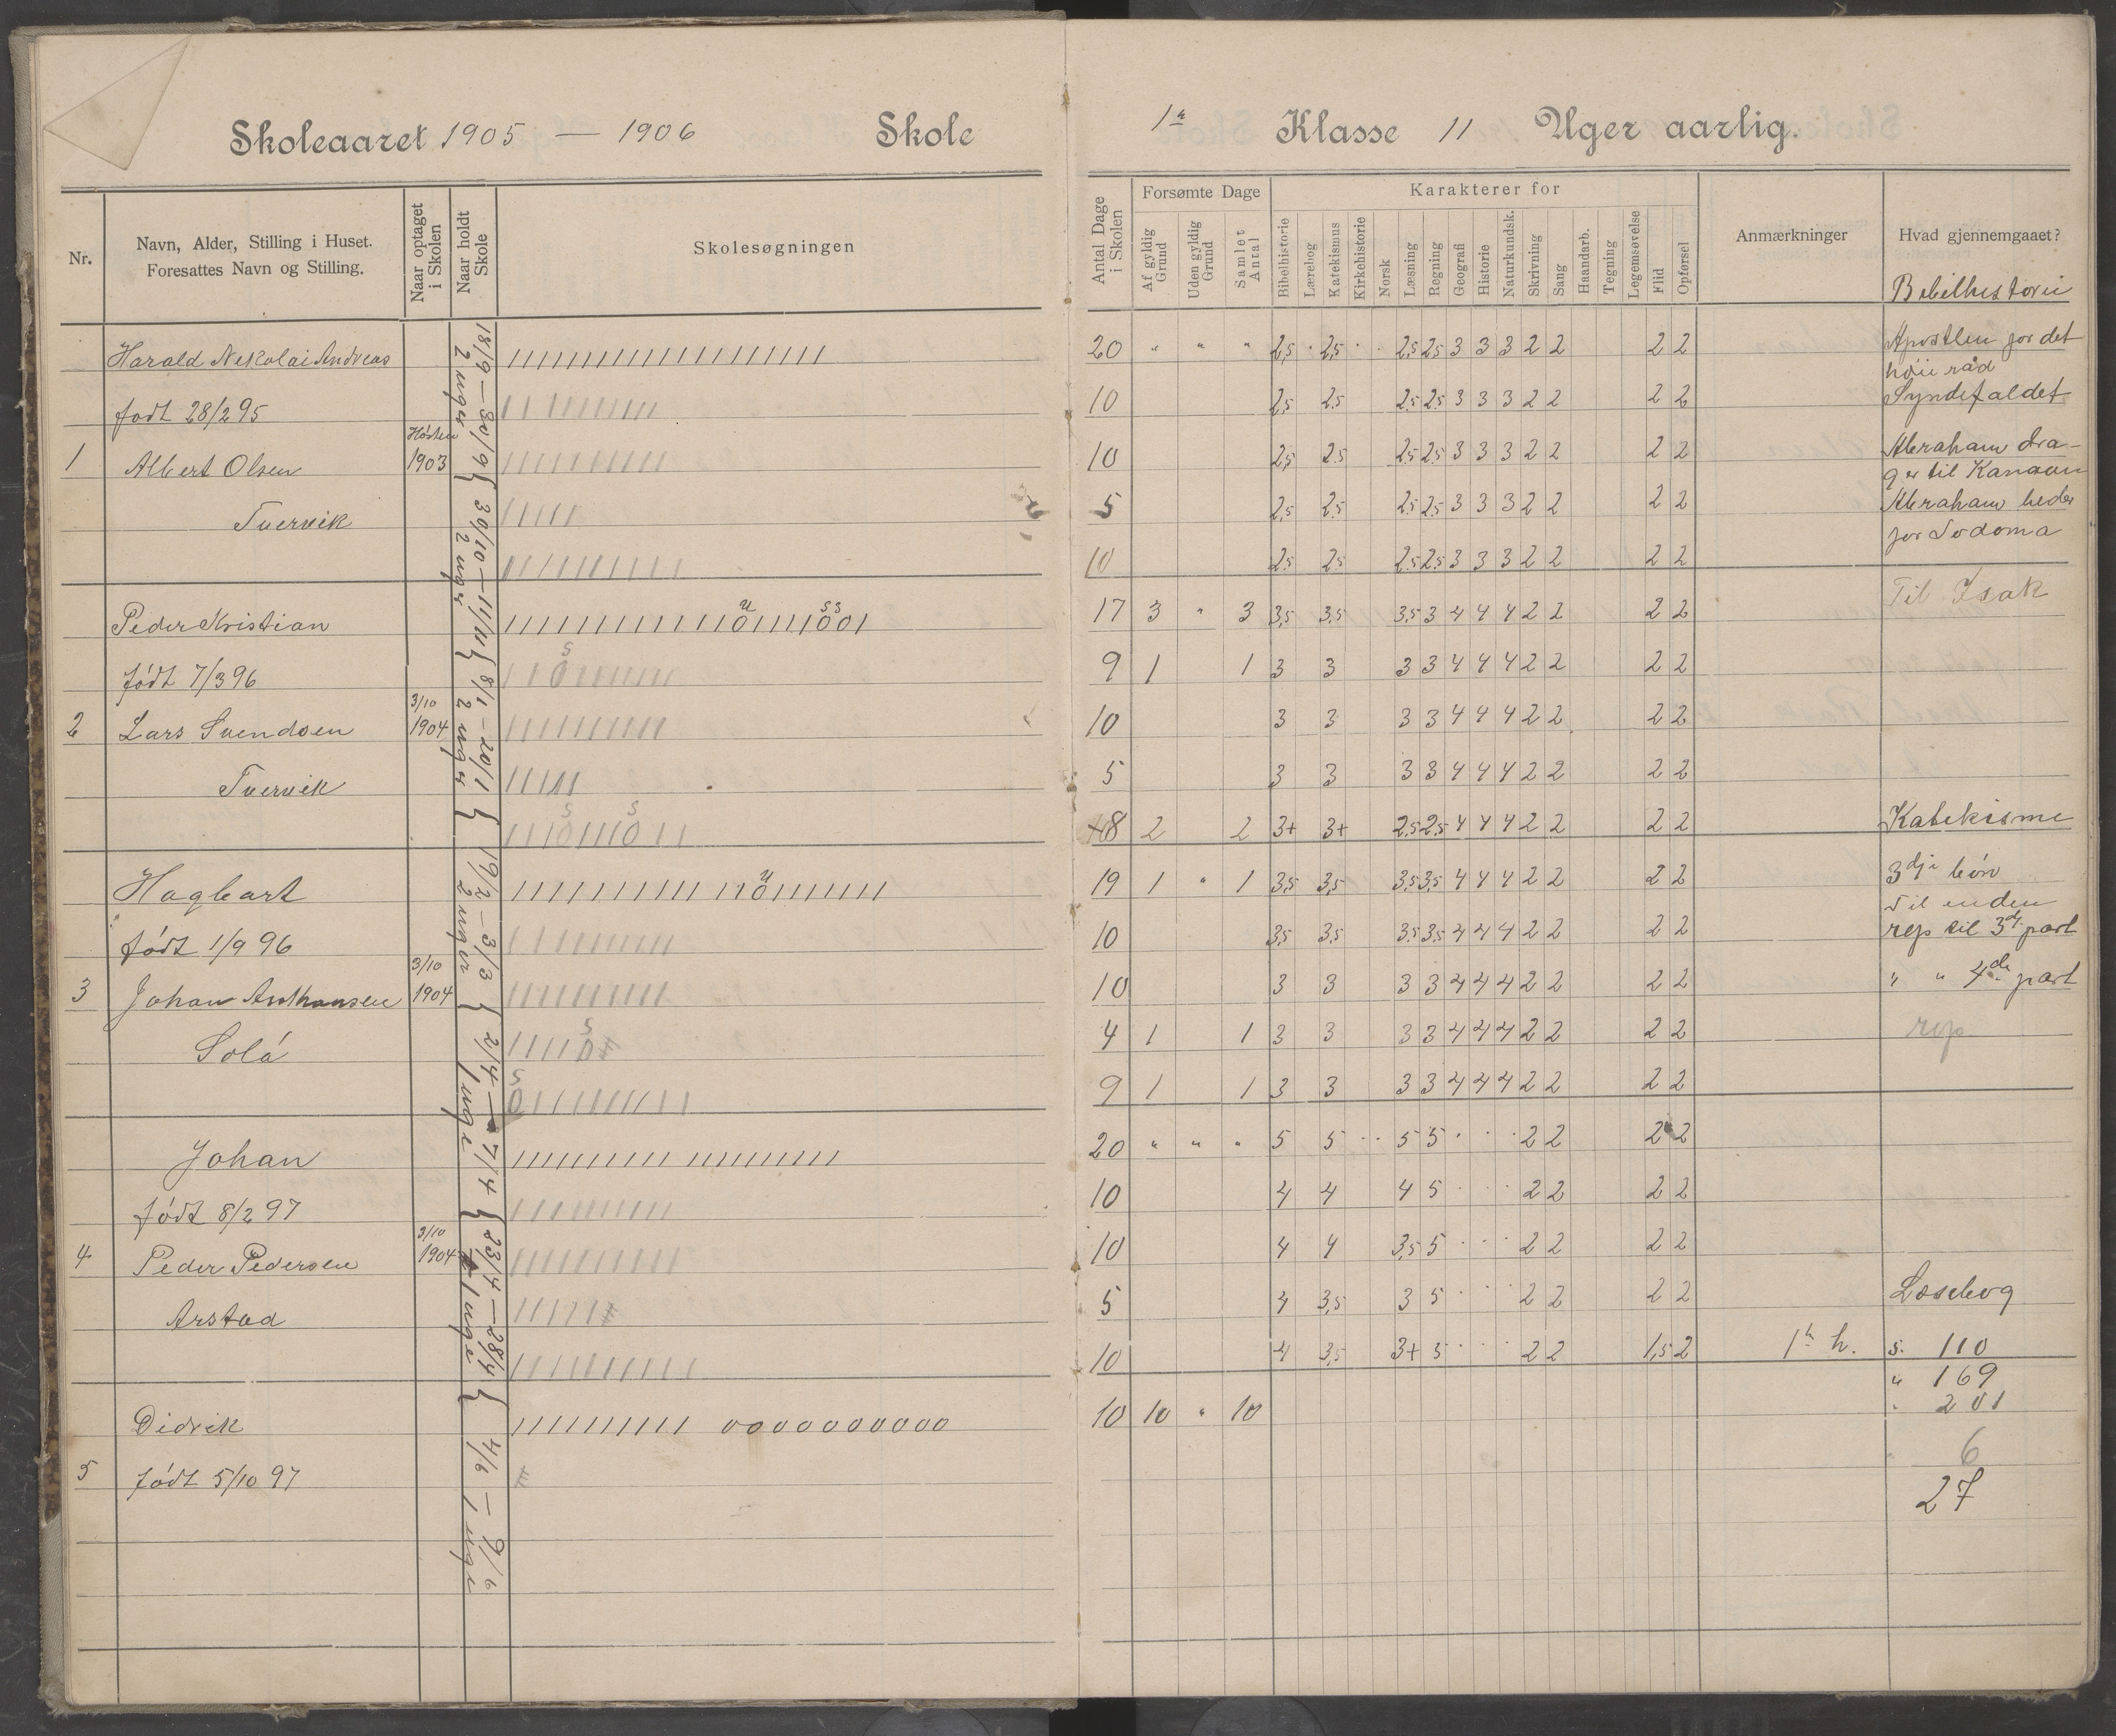 Skoleaaret 1905 — 1906 Skole
Nr.
Navn, Alder, Stilling i Huset.
Foresattes Navn og Stilling.
Naar optaget
i Skolen
Naar holdt
Skole
Skolesøgningen
Harald Nekolai Andreas
født 28/2 95
1 Albert Olsen
Høsten
1903
Tvervik
Peder Kristian
født 7/3 96
2 Lars Svendsen
3/10
1904
Tvervik
Hagbart
født 1/9 96
3 Johan Anthonsen
3/10
1904
Solå
Johan
født 8/2 97
4 Peder Pedersen
3/10
1904
Arstad
Didrik
5 født 5/10 97
18/9 — 30/9
2 uger
30/10 — 11/11
2 uger
8/1 — 20/1
2 uger
19/2 — 3/3
2 uger
2/4 — 7/4
1 uge
23/4 — 28/4
1 uge
4/6 — 9/6
1 uge
1ste Klasse 11 Uger aarlig.
Antal Dage
i Skolen
Forsømte Dage
Af gyldig
Grund
Uden gyldig
Grund
Samlet
Antal
Karakterer for
Bibelhistorie
Lærebog
Katekismus
Kirkehistorie
Norsk
Læsning
Regning
Geografi
Historie
Naturkundsk.
Skrivning
Sang
Haandarb.
Tegning
Legemsøvelse
Flid
Opførsel
Anmærkninger
Hvad gjennemgaaet?
20 " " " 2,5 2,5 2,5 2,5 3 3 3 2 2 2 2
10 2,5 2,5 2,5 2,5 3 3 3 2 2 2 2
10 2,5 2,5 2,5 2,5 3 3 3 2 2 2 2
5 2,5 2,5 2,5 2,5 3 3 3 2 2 2 2
10 2,5 2,5 2,5 2,5 3 3 3 2 2 2 2
17 3 " 3 3,5 3,5 3,5 3 4 4 4 2 2 2 2
9 1 1 3 3 3 3 4 4 4 2 2 2 2
10 3 3 3 3 4 4 4 2 2 2 2
5 3 3 3 3 4 4 4 2 2 2 2
8 2 2 3+ 3+ 2,5 2,5 4 4 4 2 2 2 2
19 1 " 1 3,5 3,5 3,5 3,5 4 4 4 2 2 2 2
10 3,5 3,5 3,5 3,5 4 4 4 2 2 2 2
10 3 3 3 3 4 4 4 2 2 2 2
4 1 1 3 3 3 3 4 4 4 2 2 2 2
9 1 1 3 3 3 3 4 4 4 2 2 2 2
20 " " " 5 5 5 5 2 2 2 2
10 4 4 4 5 2 2 2 2
10 4 4 3,5 5 2 2 2 2
5 4 3,5 3 5 2 2 2 2
10 4 3,5 3+ 5 2 2 1,5 2 h.
10 10 " 10
Bibelhistorie
Apostlen for det
høie råd
Syndefaldet
Abraham dra-
ger til Kanaan
Abraham beder
for Sodoma
Til Isak
Katekisme
3dje bøn
Til enden
rep til 3dj part
" " 4de part
rep
Læsebog
s. 110
" 169
" 201
6
27